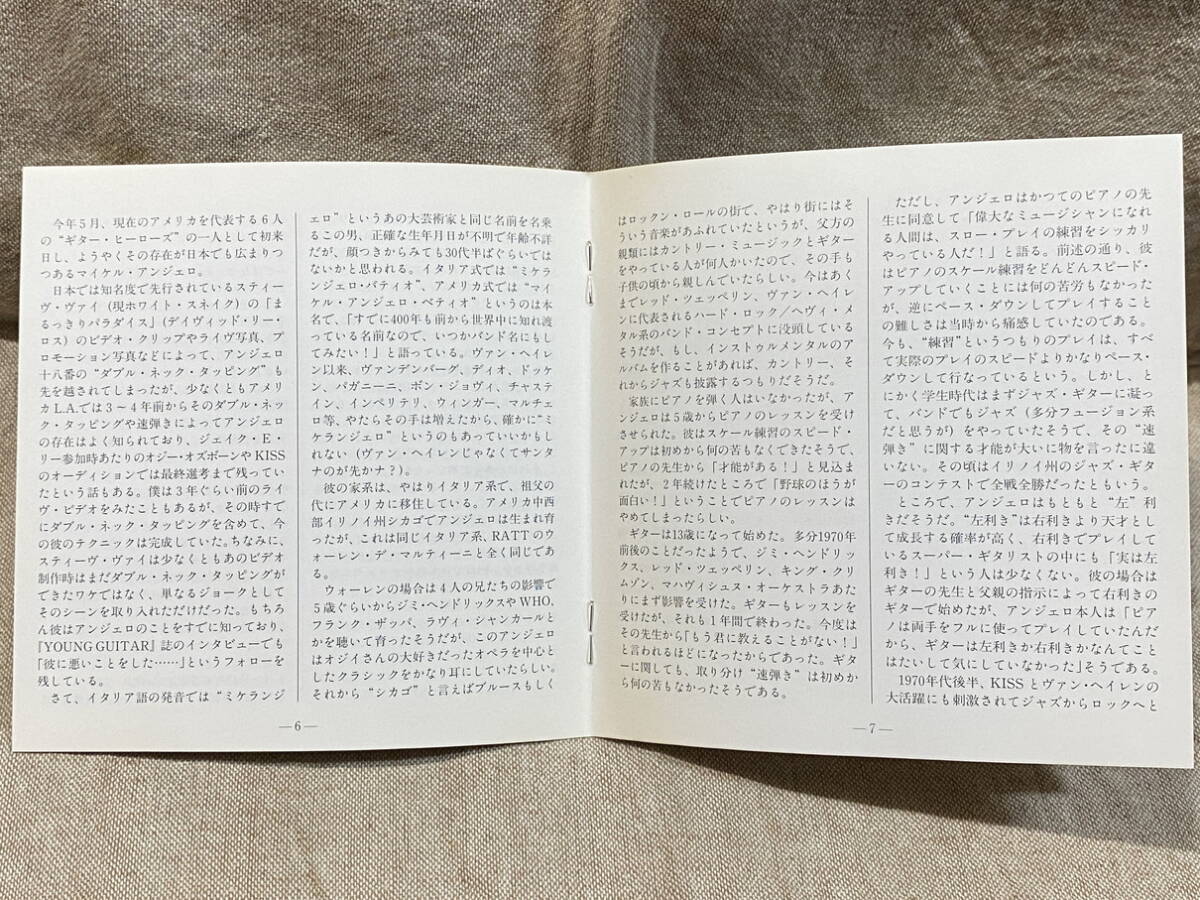 今年5月、現在のアメリカを代表する6人
の“ギター・ヒーローズ”の一人として初来
日し、ようやくその存在が日本でも広まりつ
つあるマイケル・アンジェロ。
日本では知名度で先行されているスティー
ヴ・ヴァイ（現ホワイト・スネイク）の「ま
るっきりパラダイス」(デイヴィッド・リー・
ロス）のビデオ・クリップやライヴ写真、プ
ロモーション写真などによって、アンジェロ
十八番の“ダブル・ネック・タッピング”も
先を越されてしまったが、少なくともアメリ
カL.A.では3〜4年前からそのダブル・ネッ
ク・タッピングや速弾きによってアンジェロ
の存在はよく知られており、ジェイク・E・
リー参加時あたりのオジー・オズボーンやKISS
のオーディションでは最終選考まで残ってい
たという話もある。僕は3年ぐらい前のライ
ヴ・ビデオをみたこともあるが、その時すで
にダブル・ネック・タッピングを含めて、今
の彼のテクニックは完成していた。ちなみに、
スティーヴ・ヴァイは少なくともあのビデオ
制作時はまだダブル・ネック・タッピングが
できたワケではなく、単なるジョークとして
そのシーンを取り入れただけだった。もちろ
ん彼はアンジェロのことをすでに知っており、
『YOUNG GUITAR』誌のインタビューでも
「彼に悪いことをした……」というフォローを
残している。
さて、イタリア語の発音では“ミケランジ
ェロ”というあの大芸術家と同じ名前を名乗
るこの男、正確な生年月日が不明で年齢不詳
だが、顔つきからみても30代半ばぐらいでは
ないかと思われる。イタリア式では“ミケラ
ンジェロ・バティオ”、アメリカ式では“マイ
ケル・アンジェロ・ベティオ”というのは本
名で、「すでに400年も前から世界中に知れ渡
っている名前なので、いつかバンド名にもし
てみたい！」と語っている。ヴァン・ヘイレ
ン以来、ヴァンデンバーグ、ディオ、ドッケ
ン、パガニーニ、ボン・ジョヴィ、チャステ
イン、インペリテリ、ウィンガー、マルチェ
ロ等、やたらその手は増えたから、確かに“ミ
ケランジェロ”というのもあっていいかもし
れない（ヴァン・ヘイレンじゃなくてサンタ
ナのが先かナ？)。
彼の家系は、やはりイタリア系で、祖父の
代にアメリカに移住している。アメリカ中西
部イリノイ州シカゴでアンジェロは生まれ育
ったが、これは同じイタリア系、RATTのウ
ォーレン・デ・マルティーニと全く同じであ
る。
ウォーレンの場合は4人の兄たちの影響で
5歳ぐらいからジミ・ヘンドリックスやWHO、
フランク・ザッパ、ラヴィ・シャンカールと
かを聴いて育ったそうだが、このアンジェロ
はオジイさんの大好きだったオペラを中心と
したクラシックをかなり耳にしていたらしい。
それから“シカゴ”と言えばブルースもしく
—6—
はロックン・ロールの街で、やはり街にはそ
ういう音楽があふれていたというが、父方の
親類にはカントリー・ミュージックとギター
をやっている人が何人かいたので、その手も
子供の頃から親しんでいたらしい。今はあく
までレッド・ツェッペリン、ヴァン・ヘイレ
ンに代表されるハード・ロック／ヘヴィ・メ
タル系のバンド・コンセプトに没頭している
そうだが、もし、インストゥルメンタルのア
ルバムを作ることがあれば、カントリー、そ
れからジャズも披露するつもりだそうだ。
家族にピアノを弾く人はいなかったが、ア
ンジェロは5歳からピアノのレッスンを受け
させられた。彼はスケール練習のスピード・
アップは初めから何の苦もなくできたそうで、
ピアノの先生から「才能がある！」と見込ま
れたが、2年続けたところで「野球のほうが
面白い！」ということでピアノのレッスンは
やめてしまったらしい。
ギターは13歳になって始めた。多分1970年
前後のことだったようで、ジミ・ヘンドリッ
クス、レッド・ツェッペリン、キング・クリ
ムゾン、マハヴィシュヌ・オーケストラあた
りにまず影響を受けた。ギターもレッスンを
受けたが、それも1年間で終わった。今度は
その先生から「もう君に教えることがない！」
と言われるほどになったからであった。ギタ
ーに関しても、取り分け“速弾き”は初めか
ら何の苦もなかったそうである。
ただし、アンジェロはかつてのピアノの先
生に同意して「偉大なミュージシャンになれ
る人間は、スロー・プレイの練習をシッカリ
やっている人だ！」と語る。前述の通り、彼
はピアノのスケール練習をどんどんスピード・
アップしていくことには何の苦労もなかった
が、逆にペース・ダウンしてプレイすること
の難しさは当時から痛感していたのである。
今も、“練習”というつもりのプレイは、すべ
て実際のプレイのスピードよりかなりペース・
ダウンして行なっているという。しかし、と
にかく学生時代はまずジャズ・ギターに凝っ
て、バンドでもジャズ（多分フュージョン系
だと思うが）をやっていたそうで、その“速
弾き”に関する才能が大いに物を言ったに違
いない。その頃はイリノイ州のジャズ・ギタ
ーのコンテストで全戦全勝だったともいう。
ところで、アンジェロはもともと“左”利
きだそうだ。“左利き”は右利きより天才とし
て成長する確率が高く、右利きでプレイして
いるスーパー・ギタリストの中にも「実は左
利き！」という人は少なくない。彼の場合は
ギターの先生と父親の指示によって右利きの
ギターで始めたが、アンジェロ本人は「ピア
ノは両手をフルに使ってプレイしていたんだ
から、ギターは左利きか右利きかなんてこと
はたいして気にしていなかった」そうである。
1970年代後半、KISSとヴァン・ヘイレンの
大活躍にも刺激されてジャズからロックへと
—7—